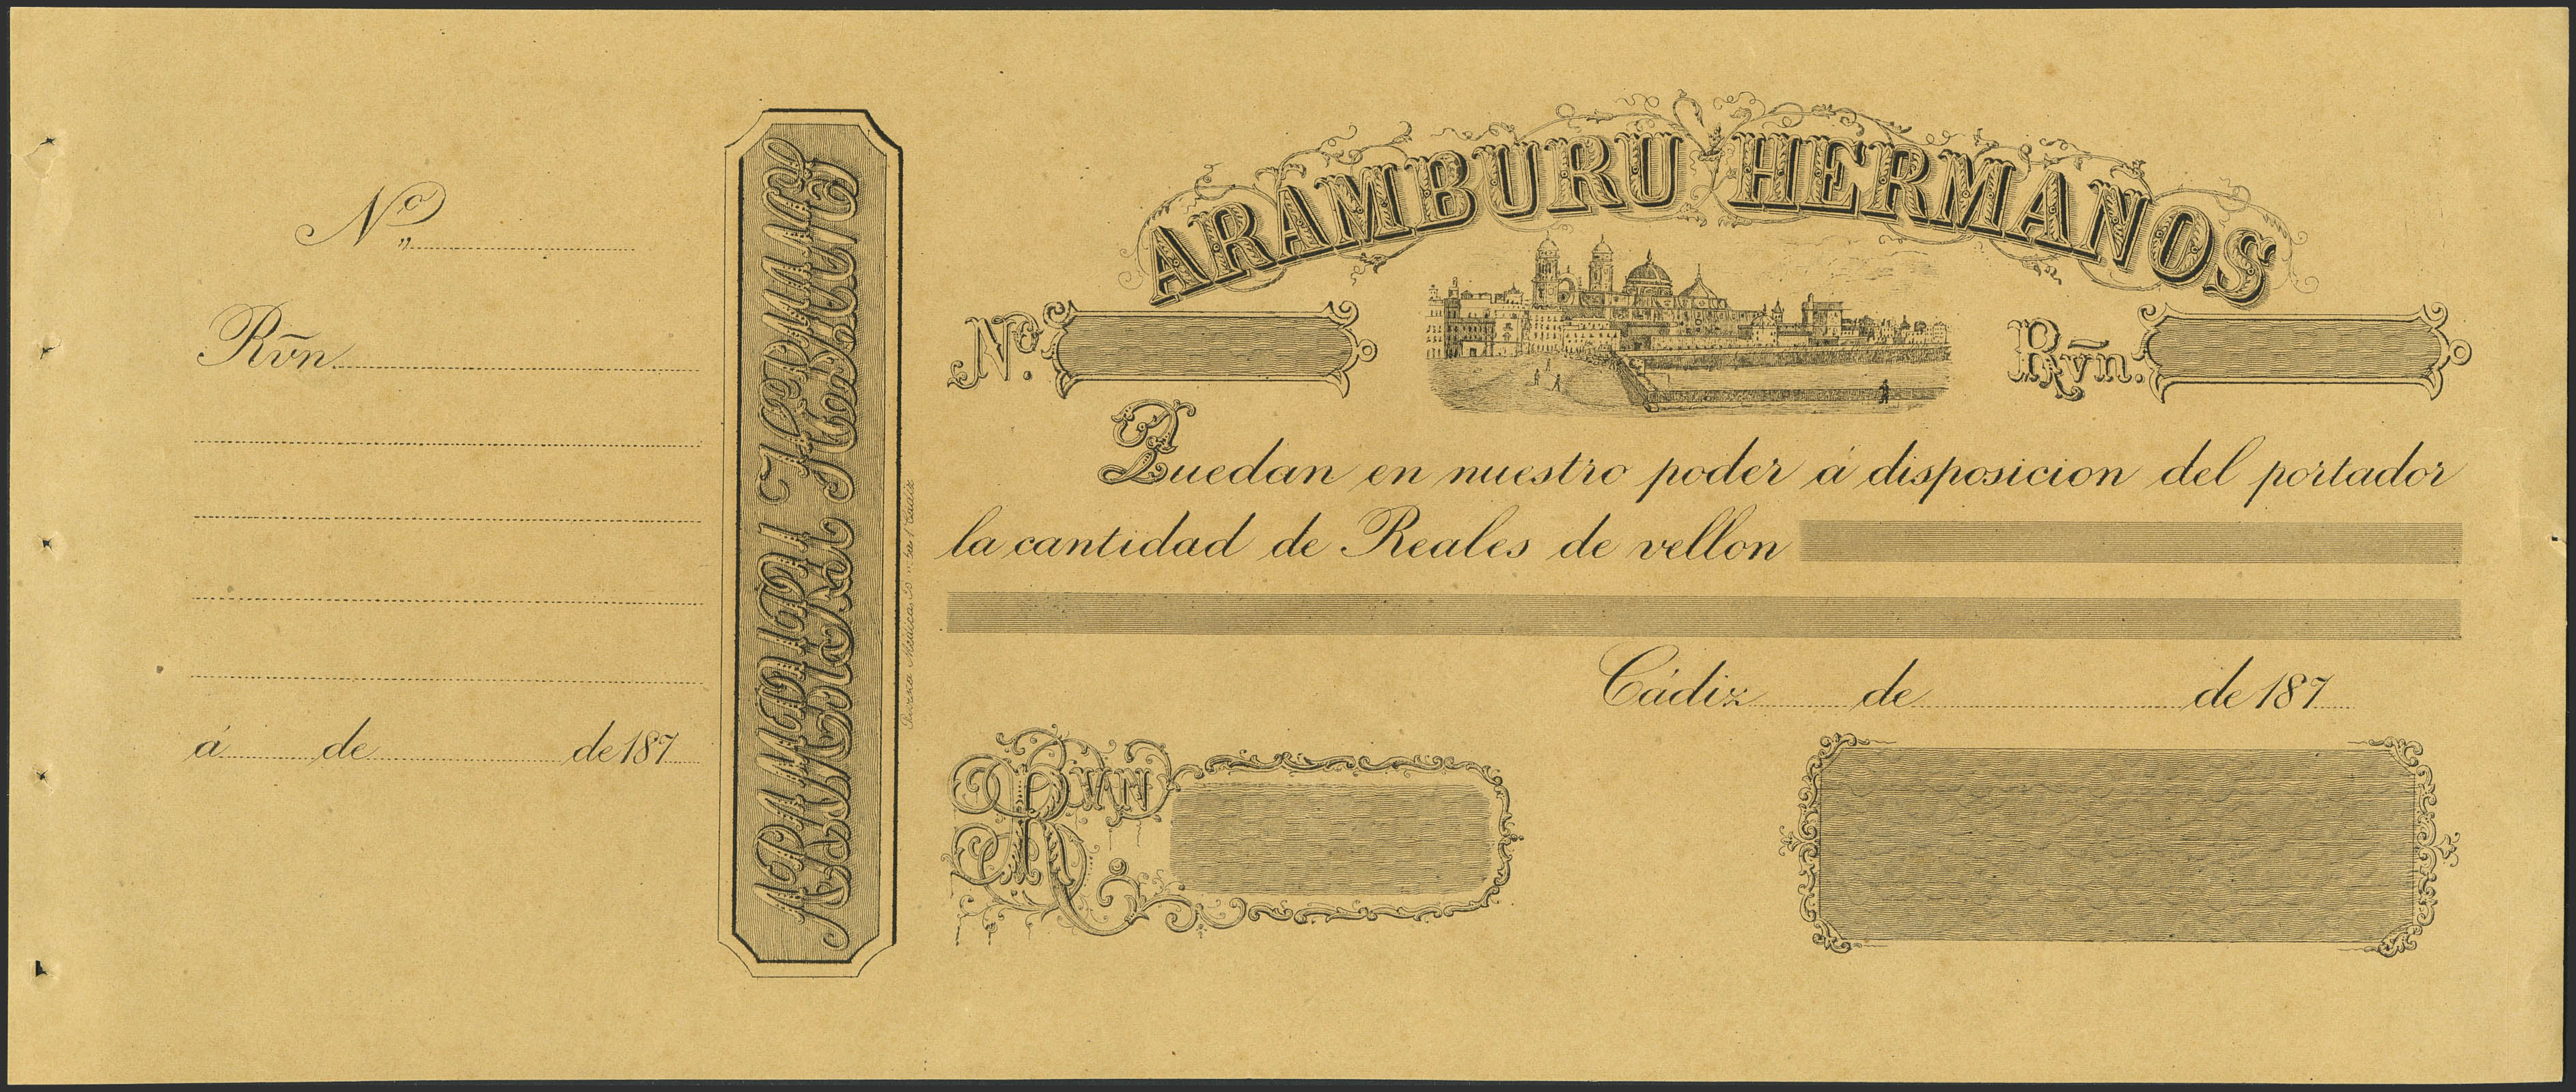 Nº
Rvn.
á de de 187
ARAMBURU HERMANOS
ARAMBURU HERMANOS
Nº.
Rvn.
Quedan en nuestro poder á disposicion del portador
la cantidad de Reales de vellon
Cádiz de de 187
RVN